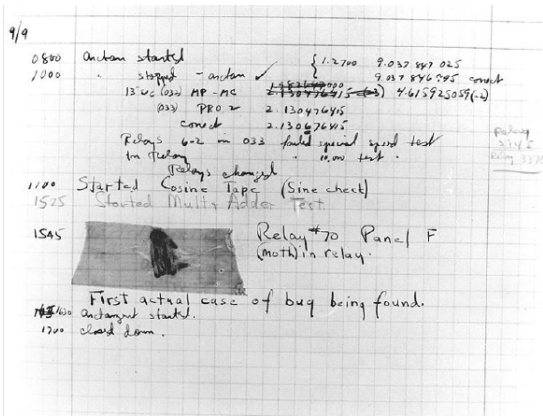 9/9
0800 Antan started { 1.2700 9.037 847 025
1000 " stopped - antan ✓ 9.037 846 995 conect
13"uc (033) MP - MC 4.615925059(-2)
(033) PRO 2 2.130476415
conect 2.130676415
Relays 6-2 in 033 failed special speed test
in Relay " 10.000 test.
Relays changed
1100 Started Cosine Tape (Sine check)
1525 Started Mult + Adder Test.
1545 Relay #70 Panel F
(moth) in relay.
First actual case of bug being found.
1630 antangent started.
1700 closed down.